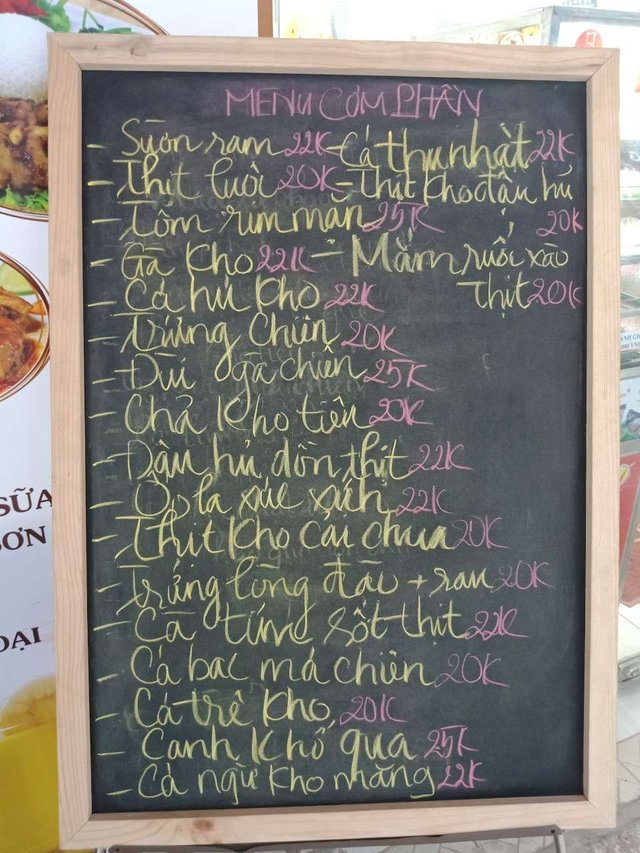 MENU CƠM PHẦN
- Sườn ram 22K - Cá thu nhật 22K
- Thịt luộc 20K - Thịt kho đậu hủ 20K
- Tôm rim mặn 25K
- Gà kho 22K - Mắm ruốc xào thịt 20K
- Cá hú kho 22K
- Trứng chiên 20K
- Đùi gà chiên 25K
- Chả kho tiêu 20K
- Đậu hủ dồn thịt 22K
- Ốp la xúc xích 22K
- Thịt kho cải chua 20K
- Trứng lòng đào + rau 20K
- Cà tím sốt thịt 22K
- Cá bạc má chiên 20K
- Cá trê kho 20K
- Canh khổ qua 25K
- Cá ngừ kho măng 22K
SỮA
SƠN
ĐẠI